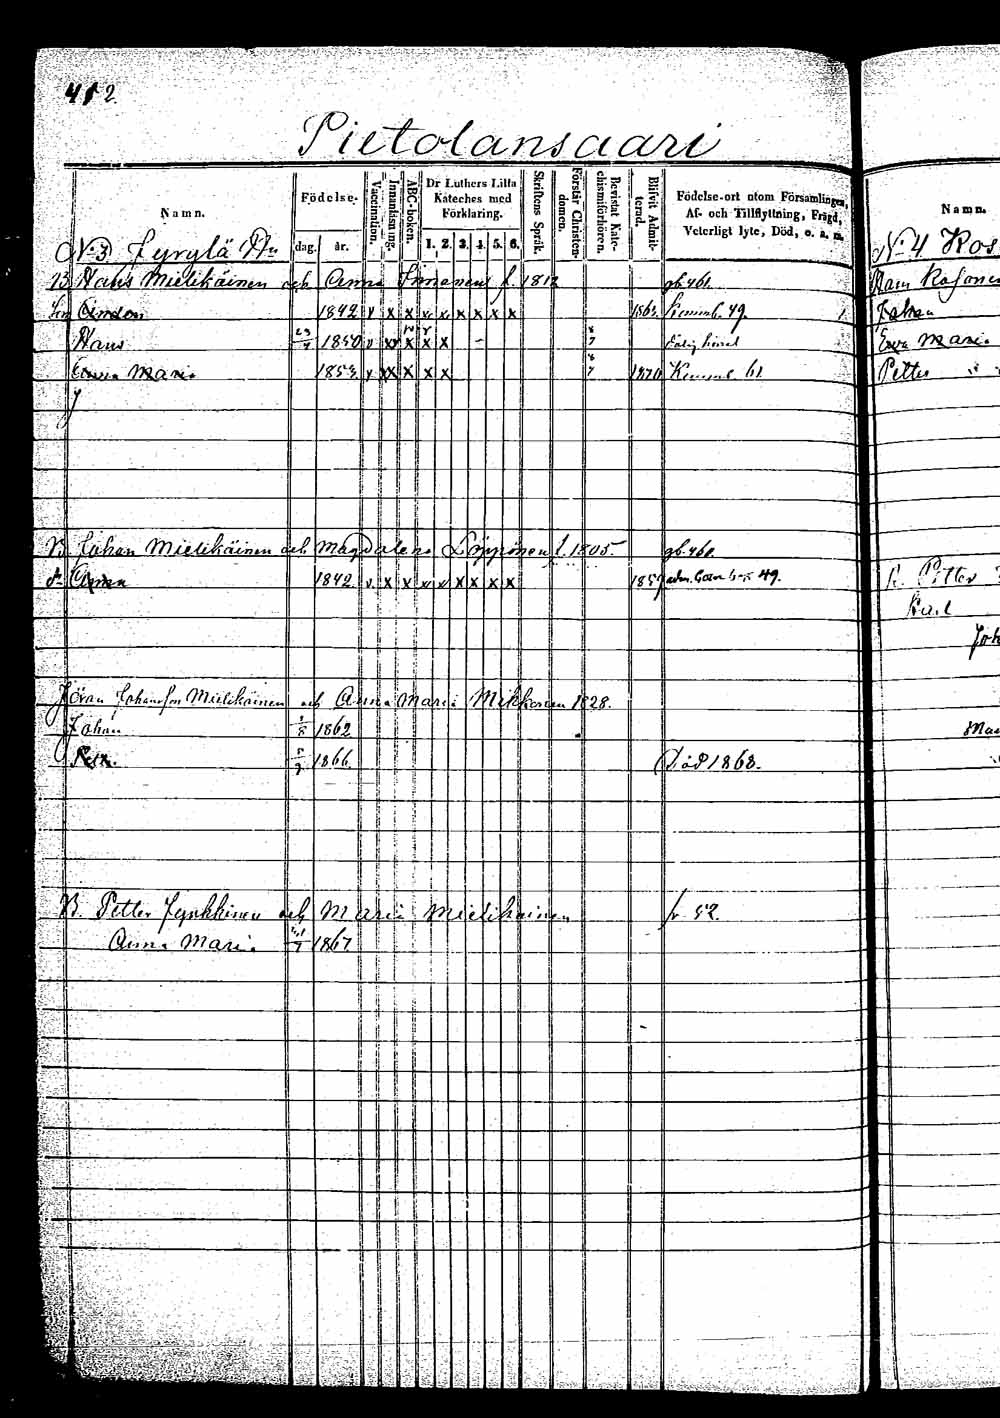 412.
Pietolansaari
Namn.
Födelse-
dag. år.
Vaccination.
Innanläsning.
ABC-boken.
Dr Luthers Lilla
Kateches med
Förklaring.
1. 2. 3. 4. 5. 6.
Skriftens Språk.
Förstår Christen-
domen.
Bevistat Kate-
chismiförhören.
Blifvit Admit-
terad.
Födelse-ort utom Församlingen,
Af- och Tillflyttning, Frägd,
Veterligt lyte, Död, o. s. m.
No 3 Jyrylä
B. Hans Mielikäinen och Anna Immonen f. 1812 gb. 461.
1842 v x x x x x x x x 1863 49.
Hans 1850 v x x x x
Ewa Maria 1853 v x x x x x 1870 61
B. Johan Mielikäinen och Magdalena Löppönen f. 1805. gb. 460.
Anna 1842. v. x x x x x x x x 1859 49.
Jöran Johansson Mielikäinen och Anna Maria Mikkonen 1828.
Johan 1862
1866 Död 1868.
B. Petter Jynkkinen och Maria Mielikäinen 52.
Anna Maria 1867
Namn.
No 4 Kos
Hans Kosonen
Johan
Ewa Maria
Petter
Petter
Karl
Joh
Ma